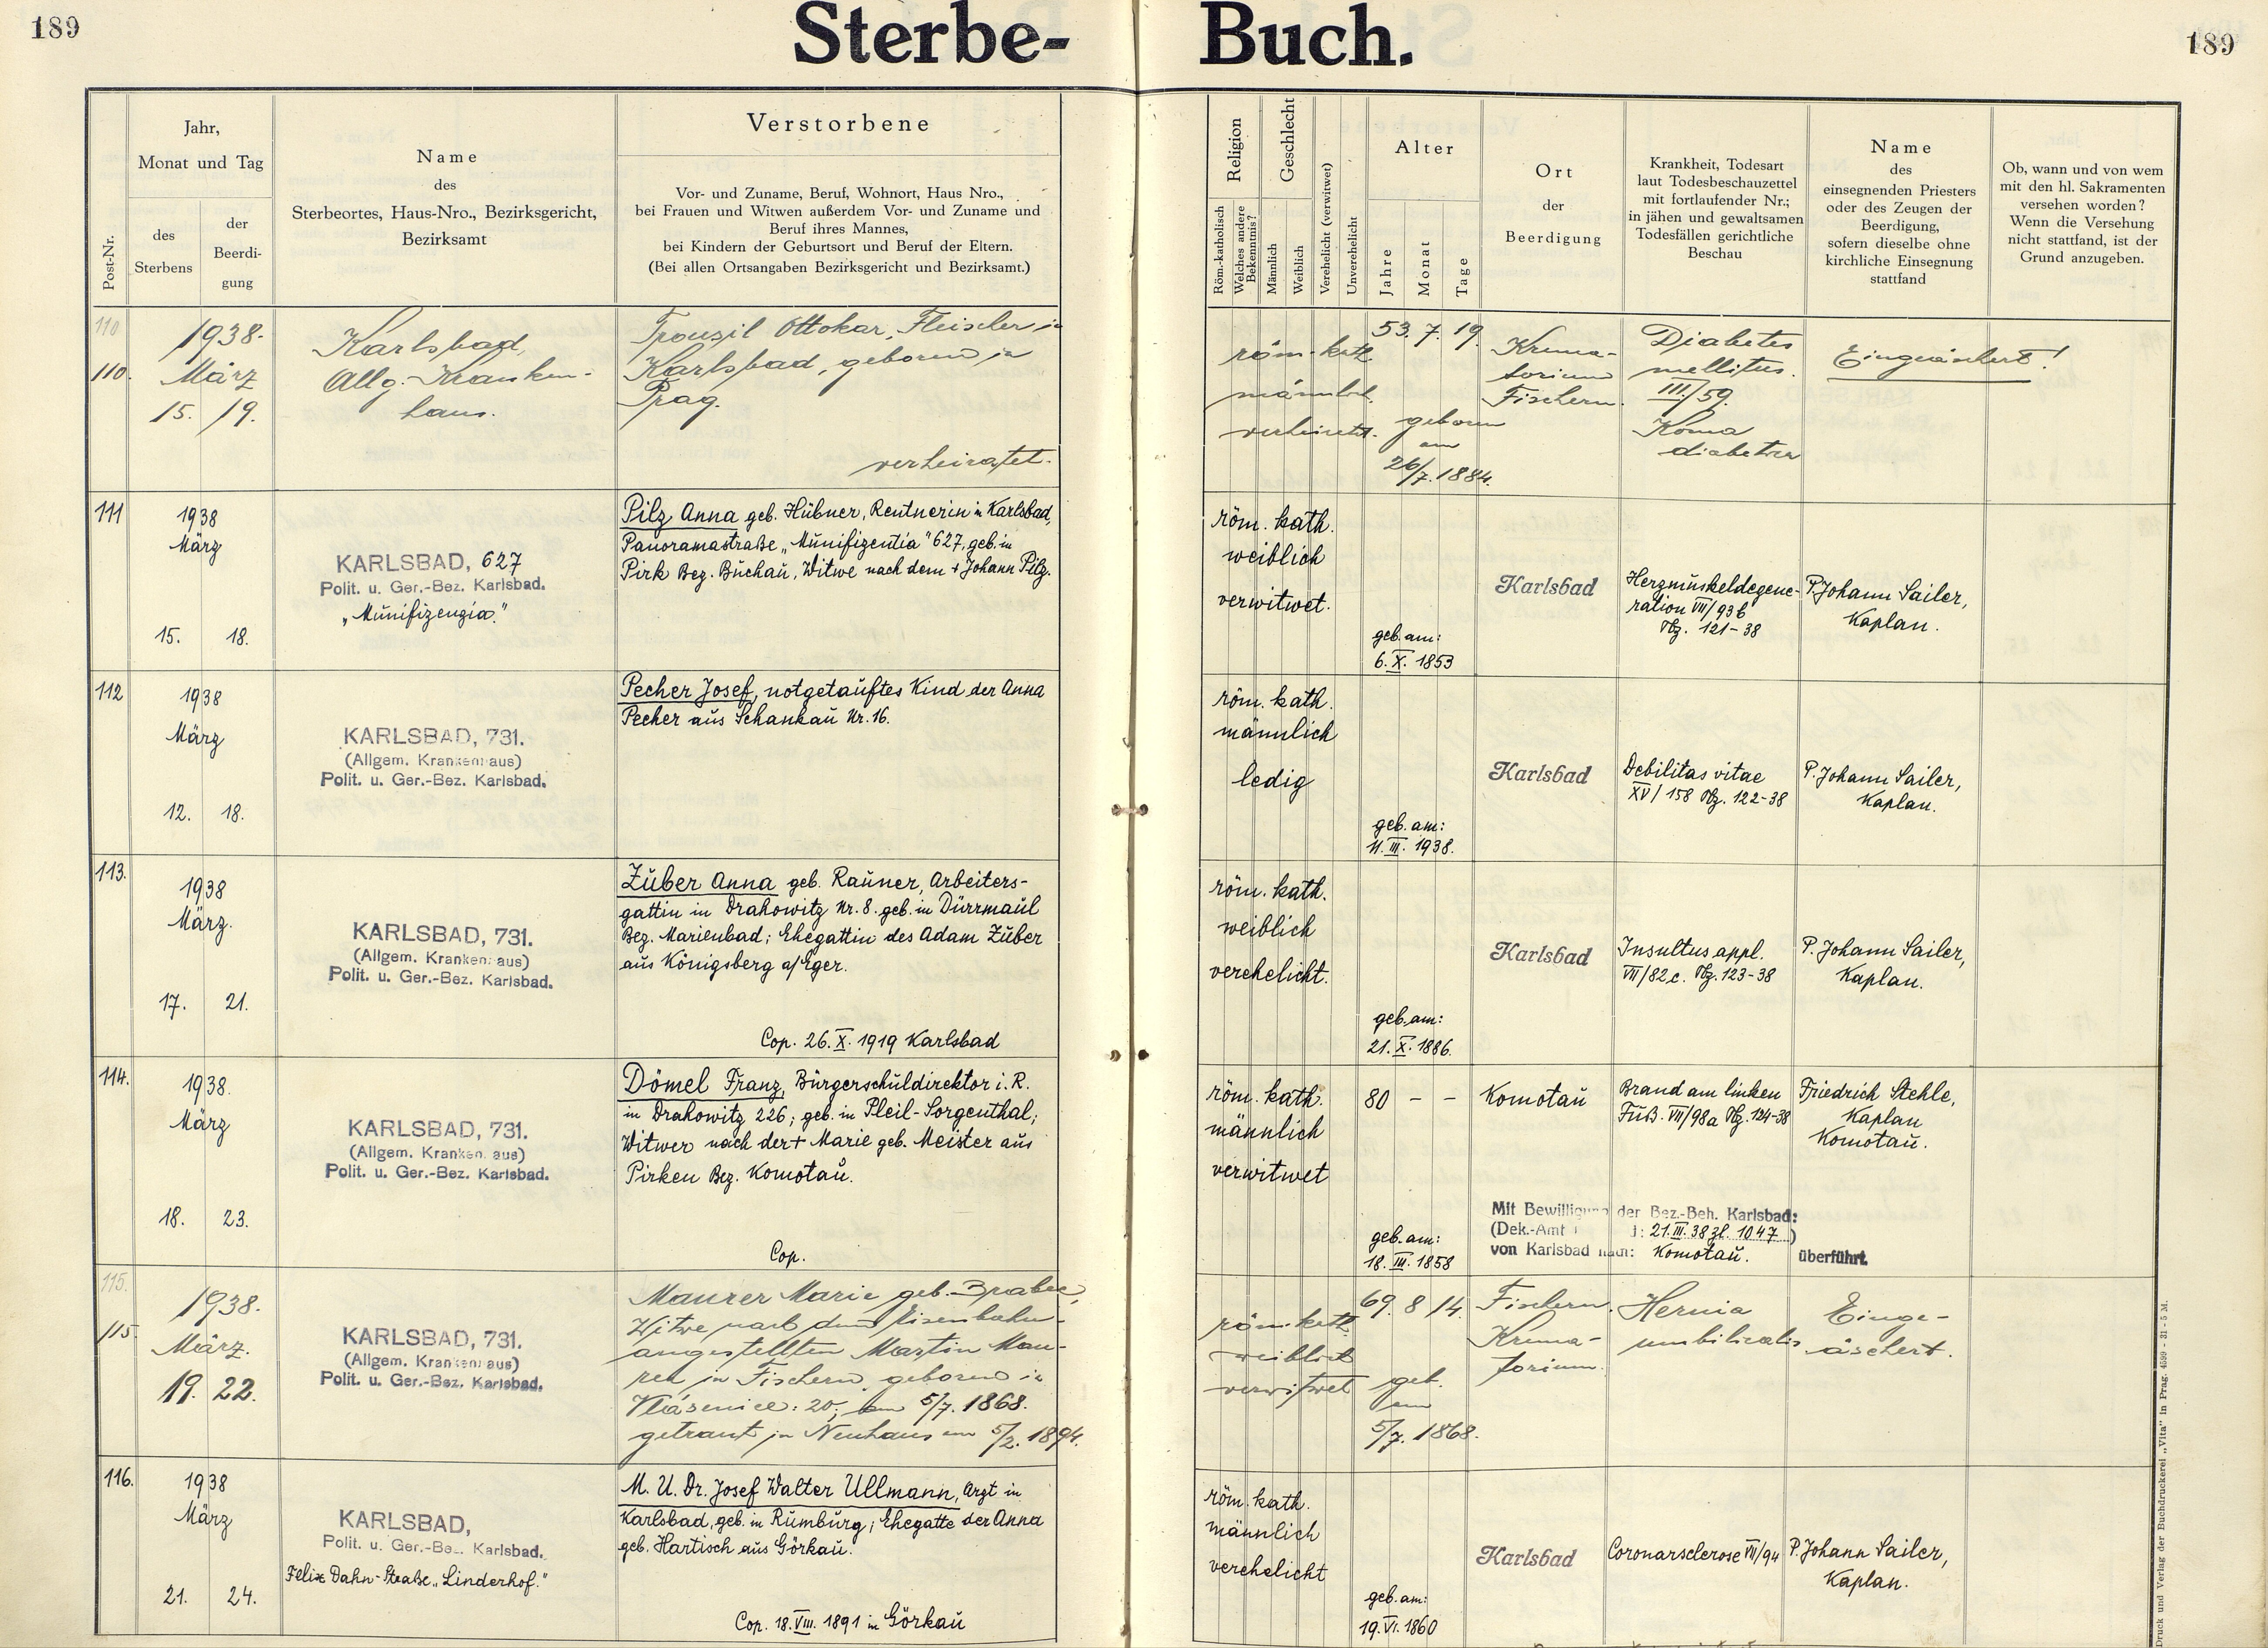 189
Sterbe-
Buch.
189
Post-Nr.
Jahr,
Monat und Tag
des
Sterbens
der
Beerdi-
gung
Name
des
Sterbeortes, Haus-Nro., Bezirksgericht,
Bezirksamt
Verstorbene
Vor- und Zuname, Beruf, Wohnort, Haus Nro.,
bei Frauen und Witwen außerdem Vor- und Zuname und
Beruf ihres Mannes,
bei Kindern der Geburtsort und Beruf der Eltern.
(Bei allen Ortsangaben Bezirksgericht und Bezirksamt.)
Religion
Röm.-katholisch
Welches andere
Bekenntnis?
Geschlecht
Männlich
Weiblich
Verehelicht (verwitwet)
Unverehelicht
Alter
Jahre
Monat
Tage
Ort
der
Beerdigung
Krankheit, Todesart
laut Todesbeschauzettel
mit fortlaufender Nr.;
in jähen und gewaltsamen
Todesfällen gerichtliche
Beschau
Name
des
einsegnenden Priesters
oder des Zeugen der
Beerdigung,
sofern dieselbe ohne
kirchliche Einsegnung
stattfand
Ob, wann und von wem
mit den hl. Sakramenten
versehen worden?
Wenn die Versehung
nicht stattfand, ist der
Grund anzugeben.
110
110.
1938.
März
15. 19.
Karlsbad,
Allg. Kranken-
haus.
Ottokar, Fleischer in
Karlsbad, geboren in
Prag.
verheiratet.
röm. kath.
männlich.
verheiratet.
53. 7. 19.
geboren
am
26/7. 1884.
Krema-
torium
Fischern.
Diabetes
mellitus.
III/59.
Koma
Eingeäschert!
111
1938
März
15. 18.
KARLSBAD, 627
Polit. u. Ger.-Bez. Karlsbad.
„Munifizenzia"
Pilz Anna geb. Hübner, Rentnerin in Karlsbad,
Panoramastraße „Munifizentia" 627, geb. in
Pirk Bez. Buchau, Witwe nach dem + Johann Pilz.
röm. kath.
weiblich
verwitwet.
geb. am:
6. X. 1853
Karlsbad
Herzmuskeldegene-
ration VII/93b
Tbz. 121-38
P. Johann Sailer,
Kaplan.
112
1938
März
12. 18.
KARLSBAD, 731.
(Allgem. Krankenhaus)
Polit. u. Ger.-Bez. Karlsbad.
Pecher Josef, notgetauftes Kind der Anna
Pecher aus Schankau Nr. 16.
röm. kath.
männlich
ledig
geb. am:
11. III. 1938.
Karlsbad
Debilitas vitae
XV/158 Tbz. 122-38
P. Johann Sailer,
Kaplan.
113.
1938
März.
17. 21.
KARLSBAD, 731.
(Allgem. Krankenhaus)
Polit. u. Ger.-Bez. Karlsbad.
Zuber Anna geb. Rauner, Arbeiters-
gattin in Drahowitz Nr. 8. geb. in Dürrmaul
Bez. Marienbad; Ehegattin des Adam Zuber
aus Königsberg a/Eger.
Cop. 26. X. 1919 Karlsbad
röm. kath.
weiblich
verehelicht.
geb. am:
21. X. 1886.
Karlsbad
Insultus appl.
VII/82c. Tbz. 123-38
P. Johann Sailer,
Kaplan.
114.
1938.
März
18. 23.
KARLSBAD, 731.
(Allgem. Krankenhaus)
Polit. u. Ger.-Bez. Karlsbad.
Dömel Franz, Bürgerschuldirektor i. R.
in Drahowitz 226; geb. in Pleil-Sorgenthal;
Witwer nach der + Marie geb. Meister aus
Pirken Bez. Komotau.
Cop.
röm. kath.
männlich
verwitwet
80 - -
geb. am:
18. III. 1858
Komotau
Brand am linken
Fuß. VII/98a Tbz. 124-38
Friedrich Stehle,
Kaplan
Komotau.
Mit Bewilligung der Bez.-Beh. Karlsbad:
(Dek.-Amt : 21. III. 38 zl. 1047)
von Karlsbad nach: Komotau. überführt.
115.
115
1938.
März.
19. 22.
KARLSBAD, 731.
(Allgem. Krankenhaus)
Polit. u. Ger.-Bez. Karlsbad.
Maurer Marie geb.
Witwe nach dem Eisenbahn-
angestellten Martin Mau-
rer in Fischern, geboren in
20, am 5/7. 1868.
getraut in Neuhaus am 5/2. 1894.
röm. kath.
weiblich
verwitwet
69. 8 14.
geb.
am
5/7. 1868.
Fischern.
Krema-
torium.
Hernia
umbilicalis
Einge-
äschert.
116.
1938
März
21. 24.
KARLSBAD,
Polit. u. Ger.-Bez. Karlsbad.
Felix Dahn-Straße „Linderhof."
M. U. Dr. Josef Walter Ullmann, Arzt in
Karlsbad, geb. in Rumburg; Ehegatte der Anna
geb. Hartisch aus Görkau.
Cop. 18. VIII. 1891 in Görkau
röm. kath.
männlich
verehelicht
geb. am:
19. VI. 1860
Karlsbad
Coronarsclerose VII/94
P. Johann Sailer,
Kaplan.
Druck und Verlag der Buchdruckerei „Vita" in Prag. 4599 - 31 - 5 M.